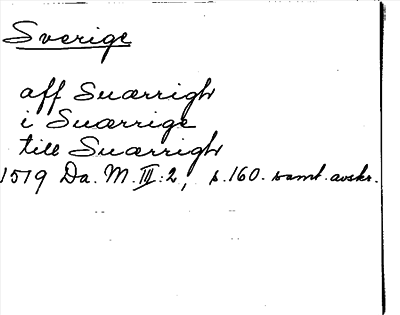 Sverige
aff Suærrigh
i Suærrige
till Suærrigh
1519 Da. M. III:2, s.160. samt. avskr.